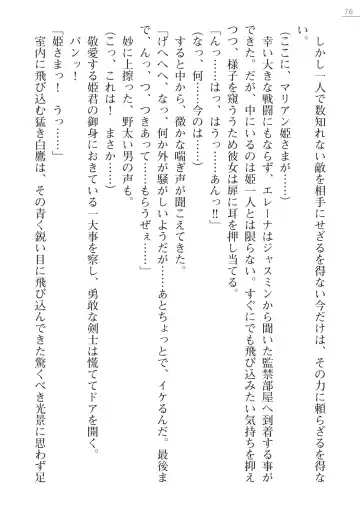 76
しかし一人で数知れない敵を相手にせざるを得ない今だけは、その力に頼らざるを得な
い。
(ここに、マリアン姫さまが……)
幸い大きな戦闘にもならず、エレーナはジャスミンから聞いた監禁部屋へ到着する事が
できた。だが、中にいるのは姫一人とは限らない。すぐにでも飛び込みたい気持ちを抑え
つつ、様子を窺うため彼女は扉に耳を押し当てる。
「んっ……はっ、はうっ……あんっ!!」
(なっ、何……今のは……)
すると中から、微かな喘ぎ声が聞こえてきた。
「げへへへ、なっ、何か外が騒がしいようだが……あとちょっとで、イケるんだ。最後ま
で、んっ、つ、つきあって……もらうぜぇ……」
妙に上擦った、野太い男の声も。
(こっ、これは! まさか……)
敬愛する姫君の御身におきている一大事を察し、勇敢な剣士は慌ててドアを開く。
バンッ!
「姫さまっ! うっ……」
室内に飛び込む猛き白鷹は、その青く鋭い目に飛び込んできた驚くべき光景に思わず足